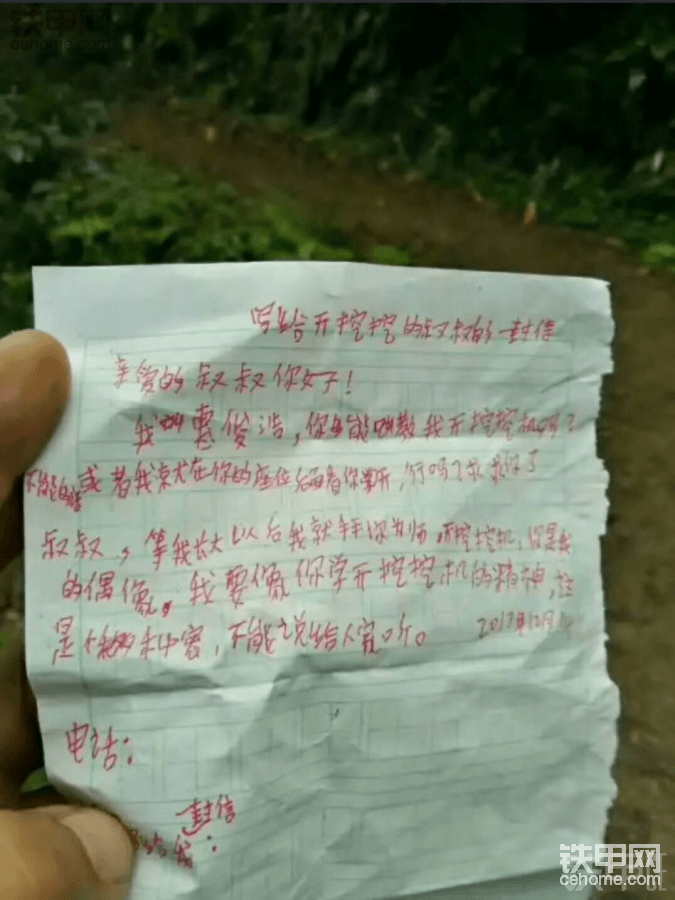 铁甲网
cehome.com
写给开挖挖的叔叔的一封信
亲爱的叔叔你好!
我叫惠俊浩,你能叫教我开挖挖机吗?
不能的话或者我来坐在你的座位后面看你开,行吗?求求你了
叔叔,等我长大以后我就拜你为师 挖挖机,你是我
的偶像。我要像你学开挖挖机的精神,这
是个秘密,不能说给人家听。 2017年12月
电话:
一封信
我:
铁甲网
cehome.com